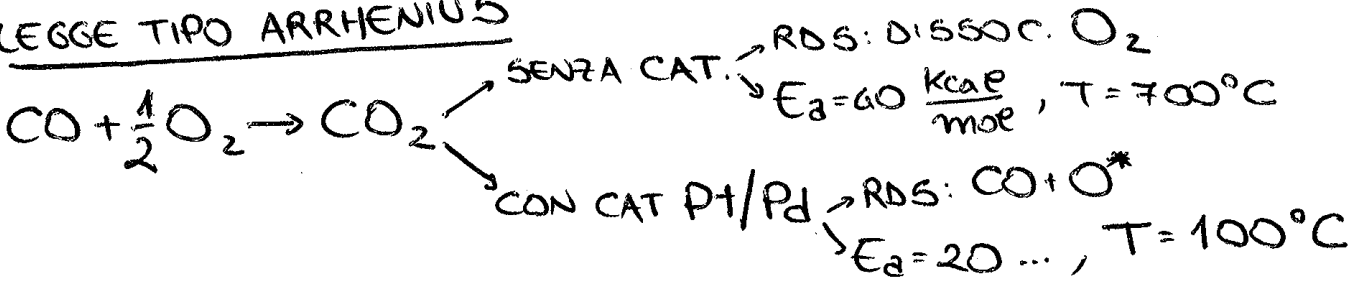 LEGGE TIPO ARRHENIUS
CO + 1/2 O₂ → CO₂
SENZA CAT. → RDS: DISSOC. O₂
→ Ea = 40 kcal/mol, T = 700°C
CON CAT Pt/Pd → RDS: CO + O*
→ Ea = 20 ..., T = 100°C